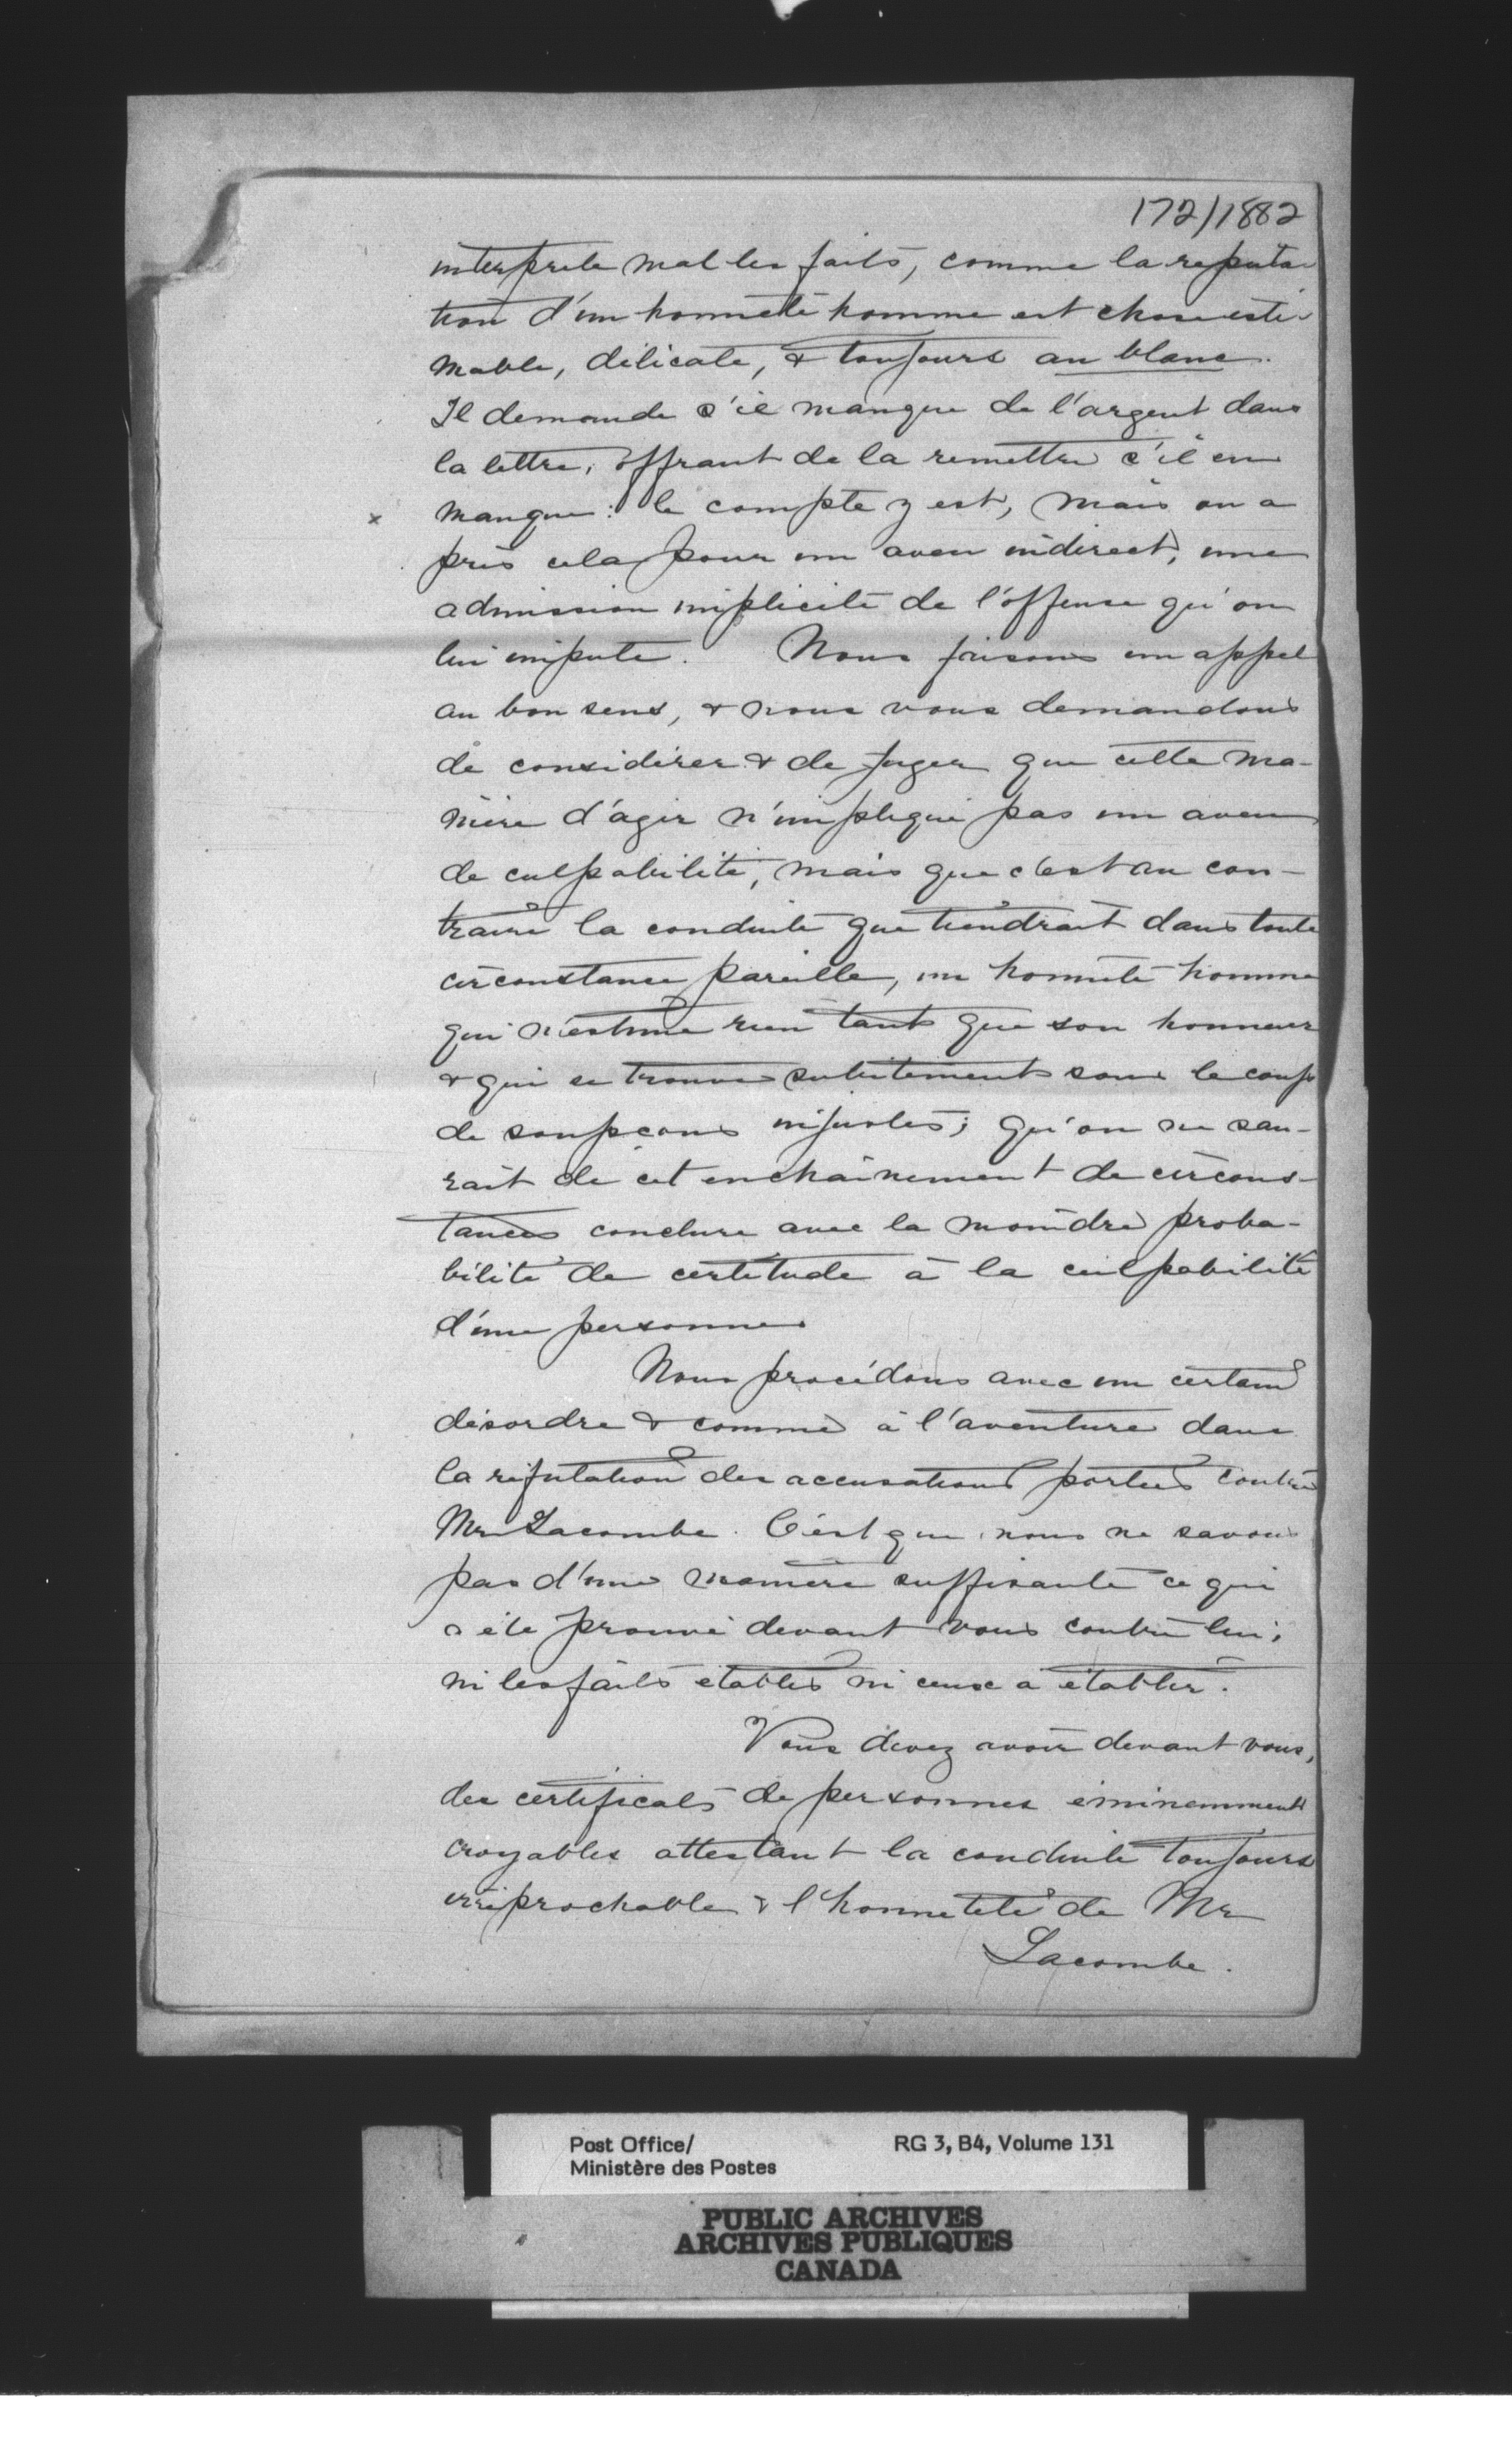 172/1882
interprete mal les faits, comme la reputa-
tion d'un honnête homme est chose esti-
mable, délicate, & toujours au blanc.
Il demande s'il manque de l'argent dans
la lettre, offrant de la remettre s'il en
x manque: le compte y est, mais on a
pris cela pour un aveu indirect, une
admission implicite de l'offense qu'on
lui impute. Nous faisons un appel
au bon sens, & nous vous demandons
de considérer & de juger que cette ma-
nière d'agir n'implique pas un aveu
de culpabilité, mais que c'est au con-
traire la conduite que tiendrait dans toute
circonstance pareille, un honnête homme
qui n'estime rien tant que son honneur
& qui se trouve subitement sous le coup
de soupçons injustes; qu'on ne sau-
rait de cet enchaînement de circons-
tances conclure avec la moindre proba-
bilité de certitude à la culpabilité
d'une personne
Nous procédons avec un certain
désordre & comme à l'aventure dans
la réfutation des accusations portées contre
Mr Lacombe. C'est que nous ne savons
pas d'une manière suffisante ce qui
a été prouvé devant vous contre lui,
ni les faits établis ni ceux à établir.
Vous devez avoir devant vous,
des certificats de personnes éminemment
croyables attestant la conduite toujours
irréprochable & l'honnêteté de Mr
Lacombe.
Post Office/ RG 3, B4, Volume 131
Ministère des Postes
PUBLIC ARCHIVES
ARCHIVES PUBLIQUES
CANADA